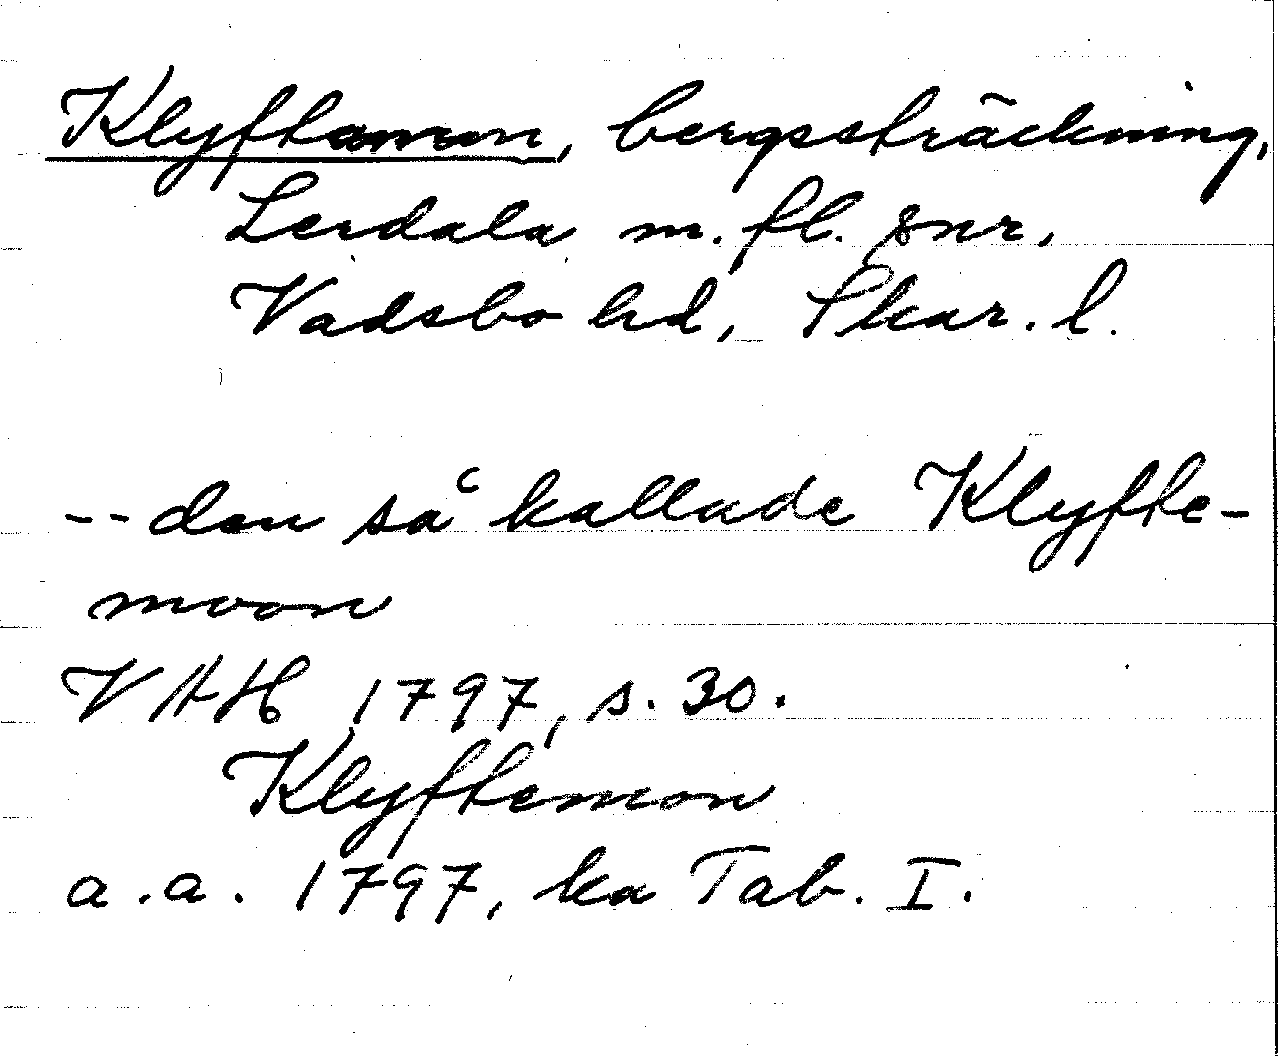 Klyftamon, bergssträckning,
Lerdala m. fl. snr,
Vadsbo hd, Skar. l.
-- den så kallade Klyfte-
moon
VAH 1797, s. 30.
Klyftemon
a.a. 1797, ka Tab. I.